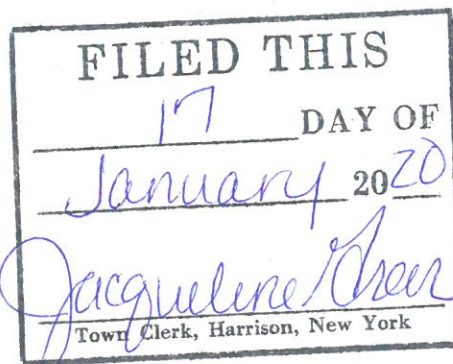 FILED THIS
17 DAY OF
January 2020
Jacqueline Greer
Town Clerk, Harrison, New York